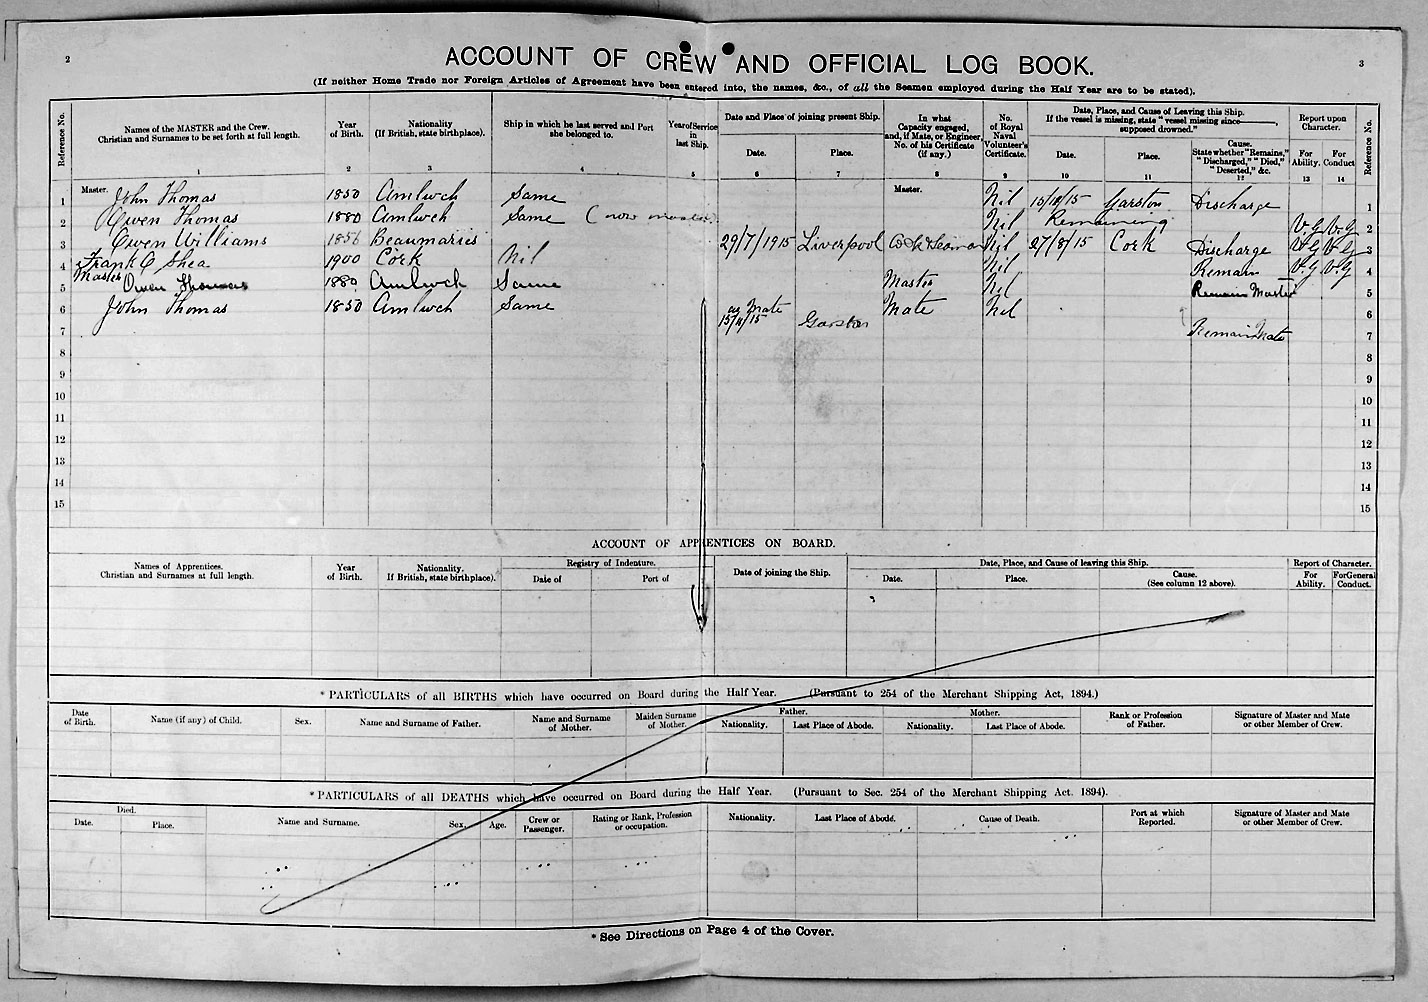 2
3
ACCOUNT OF CREW AND OFFICIAL LOG BOOK.
(If neither Home Trade nor Foreign Articles of Agreement have been entered into, the names, &c., of all the Seamen employed during the Half Year are to be stated).
Reference No.
Names of the MASTER and the Crew. Christian and Surnames to be set forth at full length.
Year of Birth.
Nationality (If British, state birthplace).
Ship in which he last served and Port she belonged to.
Year of Service in last Ship.
Date and Place of joining present Ship.
Date.
Place.
In what Capacity engaged, and, if Mate, or Engineer, No. of his Certificate (if any.)
No. of Royal Naval Volunteer's Certificate.
Date, Place, and Cause of Leaving this Ship.
If the vessel is missing, state "vessel missing since———, supposed drowned."
Date.
Place.
Cause. State whether "Remains," "Discharged," "Died," "Deserted," &c.
Report upon Character.
For Ability.
For Conduct
Reference No.
1 2 3 4 5 6 7 8 9 10 11 12 13 14
1 Master. John Thomas 1850 Amlwch Same Master. Nil 15/11/15 Garston Discharge 1
2 Owen Thomas 1880 Amlwch Same (now master) Nil Remaining V.G V.G 2
3 Owen Williams 1856 Beaumaris 29/7/1915 Liverpool Cook & Seaman Nil 27/8/15 Cork Discharge V.G V.G 3
4 Frank O Shea 1900 Cork Nil Nil Remain V.G V.G 4
5 Master Owen Thomas 1880 Amlwch Same Master Nil Remain Master 5
6 John Thomas 1850 Amlwch Same as Mate 15/11/15 Garston Mate Nil 6
7 Remain Mate 7
8 8
9 9
10 10
11 11
12 12
13 13
14 14
15 15
ACCOUNT OF APPRENTICES ON BOARD.
Names of Apprentices. Christian and Surnames at full length.
Year of Birth.
Nationality. If British, state birthplace).
Registry of Indenture.
Date of
Port of
Date of joining the Ship.
Date, Place, and Cause of leaving this Ship.
Date.
Place.
Cause. (See column 12 above).
Report of Character.
For Ability.
For General Conduct.
*PARTICULARS of all BIRTHS which have occurred on Board during the Half Year. (Pursuant to 254 of the Merchant Shipping Act, 1894.)
Date of Birth.
Name (if any) of Child.
Sex.
Name and Surname of Father.
Name and Surname of Mother.
Maiden Surname of Mother.
Father.
Nationality.
Last Place of Abode.
Mother.
Nationality.
Last Place of Abode.
Rank or Profession of Father.
Signature of Master and Mate or other Member of Crew.
*PARTICULARS of all DEATHS which have occurred on Board during the Half Year. (Pursuant to Sec. 254 of the Merchant Shipping Act. 1894).
Died.
Date.
Place.
Name and Surname.
Sex.
Age.
Crew or Passenger.
Rating or Rank, Profession or occupation.
Nationality.
Last Place of Abode.
Cause of Death.
Port at which Reported.
Signature of Master and Mate or other Member of Crew.
*See Directions on Page 4 of the Cover.